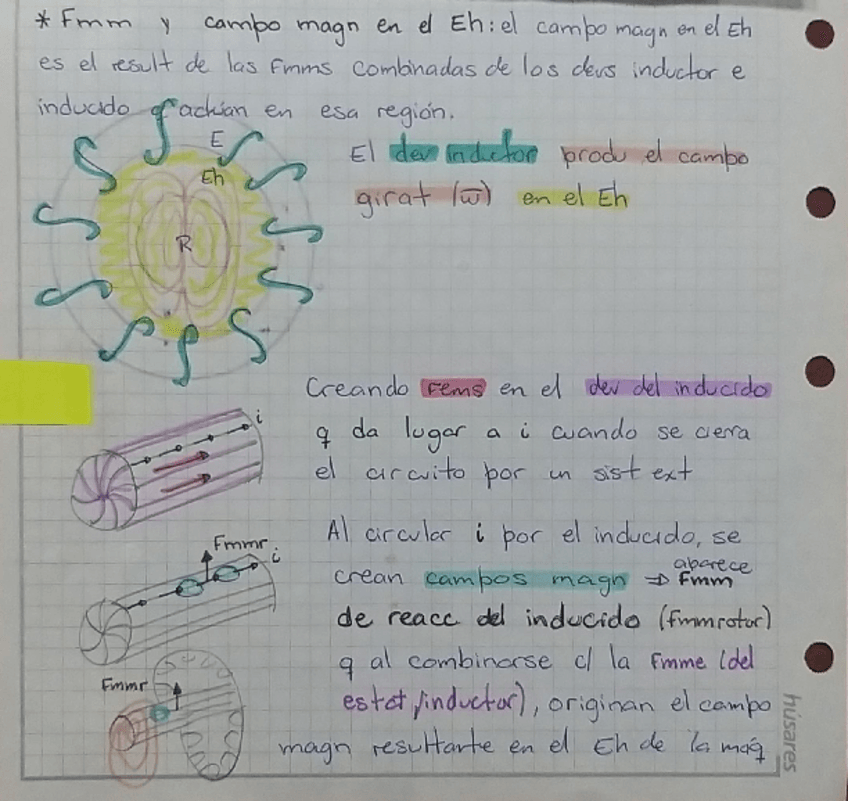 * Fmm y campo magn en el Eh: el campo magn en el Eh
es el result de las Fmms combinadas de los devs inductor e
inducido q actúan en esa región.
E
Eh
R
El dev inductor produ el campo
girat (ω̅) en el Eh
Creando fems en el dev del inducido
q da lugar a i cuando se cierra
el circuito por un sist ext
i
Al circular i por el inducido, se
crean campos magn ⇒ aparece Fmm
de reacc del inducido (fmmrotor)
q al combinarse c/ la Fmme (del
estat/inductor), originan el campo
magn resultante en el Eh de la máq
Fmmr
i
Fmmr
húsares